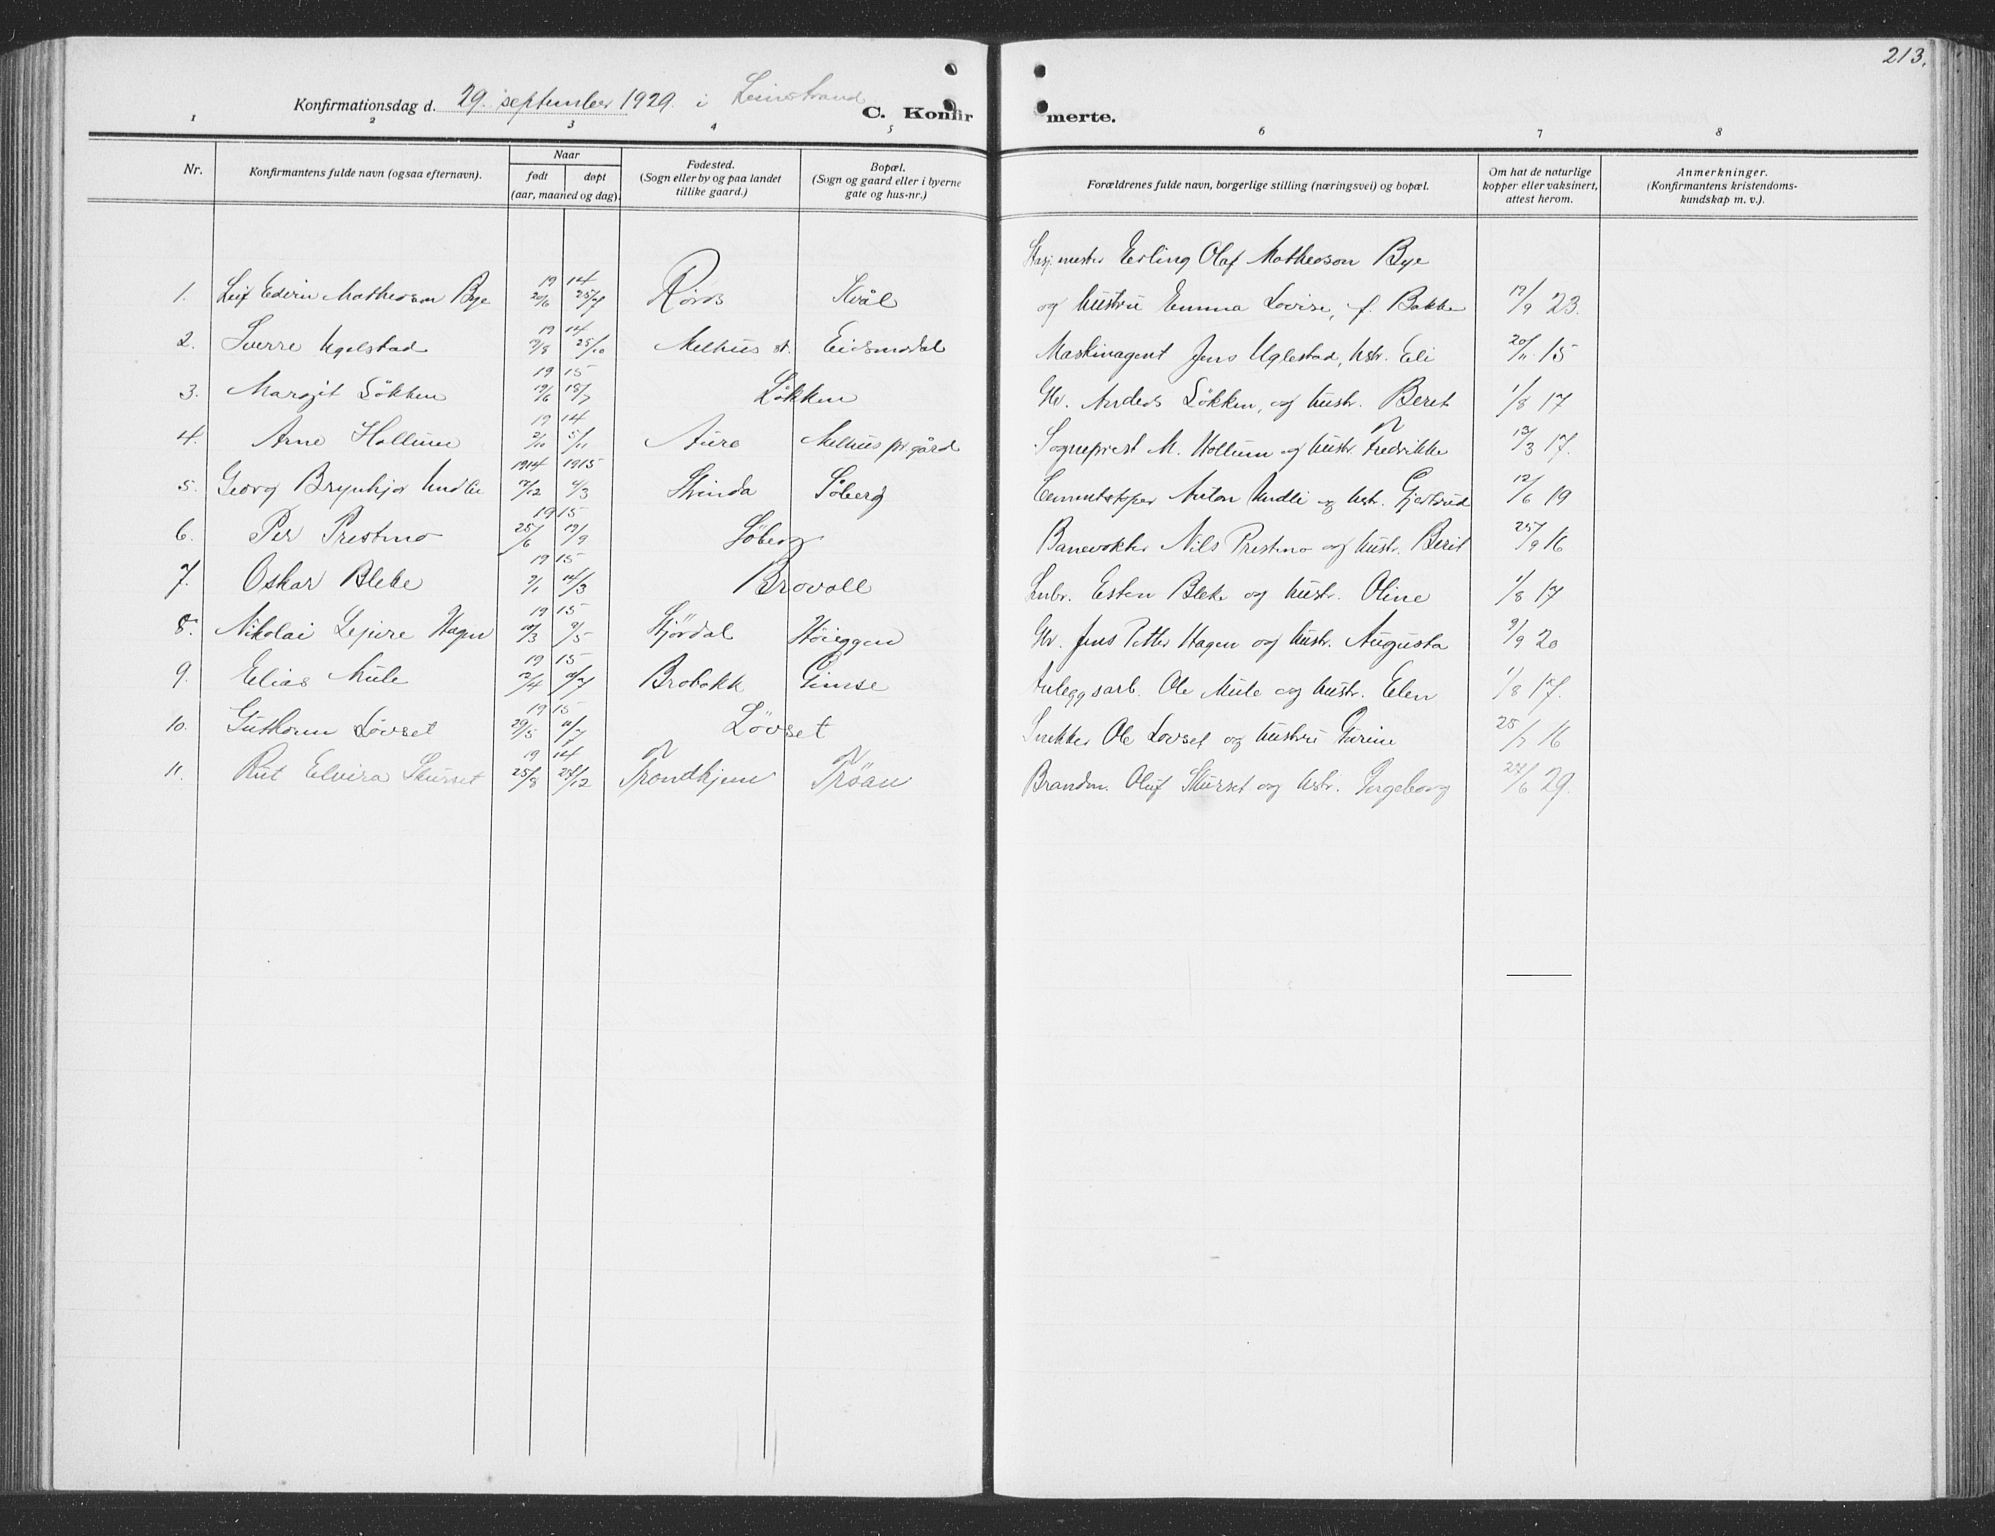 213.
Konfirmationsdag d. 29. september 1929. i Leinstrand
C. Konfirmerte.
1 2 3 4 5 6 7 8
Nr. Konfirmantens fulde navn (ogsaa efternavn). Naar født døpt (aar, maaned og dag) Fødested. (Sogn eller by og paa landet tillike gaard.) Bopæl. (Sogn og gaard eller i byerne gate og hus-nr.) Forældrenes fulde navn, borgerlige stilling (næringsvei) og bopæl. Om hat de naturlige kopper eller vaksinert, attest herom. Anmerkninger. (Konfirmantens kristendoms-kundskap m. v.).
Stasj.mester Erling Olaf Matheson Bye
1. Leif Edvin Matheson Bye 19 14 20/6 25/7 Röros Kvål og hustru Emma Lovise, f. Bakke 17/9 23.
2. Sverre Uglestad 19 14 /8 25/10 Melhus st. Eidsmodal Maskinagent Jens Uglestad, hstr. Eli 20/11 15
3. Margit Lökken 19 15 19/6 18/7 Lökken Gbr. Anders Lökken, og hustr. Beret 1/8 17
4. Arne Hollum 19 14 2/10 5/11 Aure Melhus pr.gård Sogneprest M. Hollum og hustr. Fredrikke 13/3 17.
5. Georg Brynhjo Undli 1914 1915 /12 4/3 Strinda Söberg Cementstöper Anton Undli og hstr. Gjertrud 12/6 19
6. Per Prestmo 19 15 25/6 19/9 Söberg Banevokter Nils Prestmo og hustr. Berit 25/9 16
7. Oskar Bleke 19 15 2/1 14/3 Brovoll Snbr. Esten Bleke og hustr. Oline 1/8 17
8. Nikolai Lejure Hagen 19 15 10/3 9/5 Stjördal Höieggen Gbr. Jens Petter Hagen og hustr. Augusta 9/9 20
9. Elias Mule 19 15 12/4 11/7 Brobakk Gimse Anleggsarb. Ole Mule og hustr. Elen 1/8 17.
10. Guthorm Lövset 19 15 29/5 11/7 Lövset Snekker Ole Lövset og hustru Gurine 25/7 16
11. Rut Elvira Skurset 19 14 25/8 27/12 Trondhjem Tröan Brandm. Oluf Skurset og hstr. Ingeborg 27/6 29.